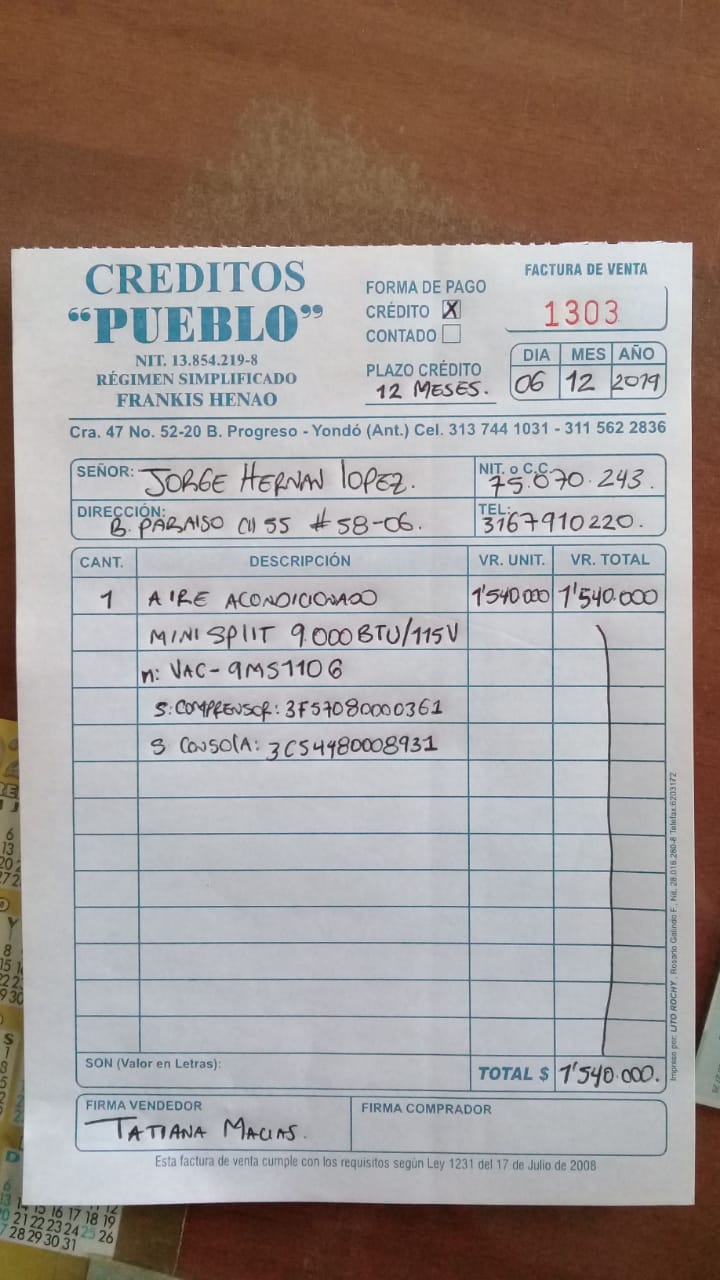 CREDITOS
"PUEBLO"
NIT. 13.854.219-8
RÉGIMEN SIMPLIFICADO
FRANKIS HENAO
FORMA DE PAGO
CRÉDITO X
CONTADO
PLAZO CRÉDITO
12 MESES.
FACTURA DE VENTA
1303
DIA MES AÑO
06 12 2019
Cra. 47 No. 52-20 B. Progreso - Yondó (Ant.) Cel. 313 744 1031 - 311 562 2836
SEÑOR: JORGE HERNAN lOPEZ. NIT. o C.C. 75.070.243.
DIRECCIÓN: B. PARAISO Cll 55 # 58-06. TEL: 3167910220.
CANT. DESCRIPCIÓN VR. UNIT. VR. TOTAL
1 AIRE ACONDICIONADO 1'540000 1'540.000
MINI SPlIT 9.000BTU/115V
m: VAC-9MS1106
S: COMPRENSOR: 3F57080000361
S CONSOlA: 3C54480008931
SON (Valor en Letras): TOTAL $ 1'540.000.
FIRMA VENDEDOR FIRMA COMPRADOR
TATIANA MACIAS.
Esta factura de venta cumple con los requisitos según Ley 1231 del 17 de Julio de 2008
Impreso por: LITO ROCHY, Rosario Galindo F., Nit. 28.016.260-8 Telefax:6203172